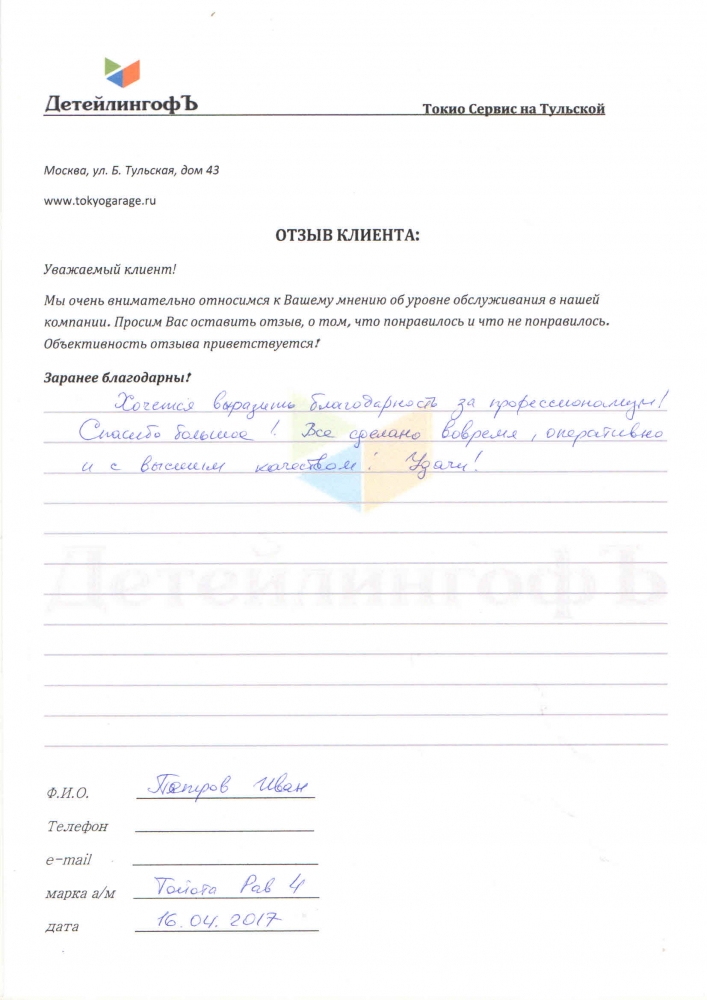 ДетейлингофЪ
Токио Сервис на Тульской
Москва, ул. Б. Тульская, дом 43
www.tokyogarage.ru
ОТЗЫВ КЛИЕНТА:
Уважаемый клиент!
Мы очень внимательно относимся к Вашему мнению об уровне обслуживания в нашей
компании. Просим Вас оставить отзыв, о том, что понравилось и что не понравилось.
Объективность отзыва приветствуется!
Заранее благодарны!
Хочется выразить благодарность за профессионализм!
Спасибо большое! Все сделано вовремя, оперативно
и с высшим качеством! Удачи!
ДетейлингофЪ
Ф.И.О. Петров Иван
Телефон
e-mail
марка а/м Тойота Рав 4
дата 16.04.2017